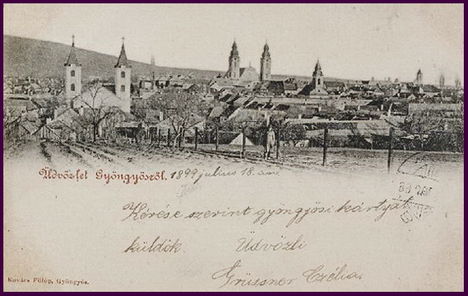 Üdvözlet Gyöngyösről. 1899 július 18.
Kérése szerint gyöngyösi kártyát
küldök Üdvözli
Grüssner Czélia.
Kovács Fülöp, Gyöngyös.